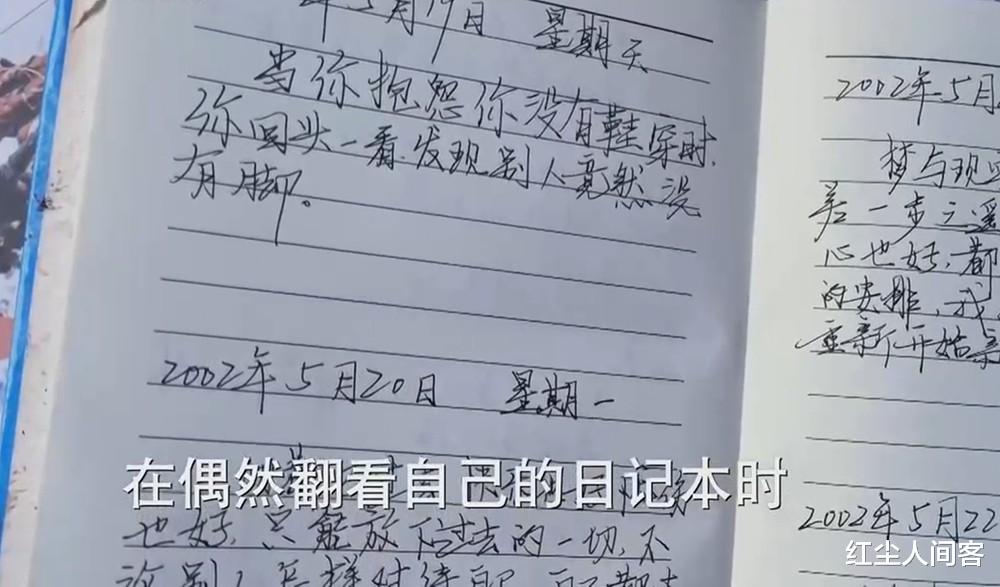 年5月19日 星期天
当你抱怨你没有鞋穿时,
你回头一看,发现别人竟然没
有脚。
2002年5月20日 星期一
在偶然翻看自己的日记本时
也好,只能放下过去的一切,不
2002年5月
梦与现
差一步之遥
心也好,都
的安排,我
重新开始亲
2002年5月22
红尘人间客